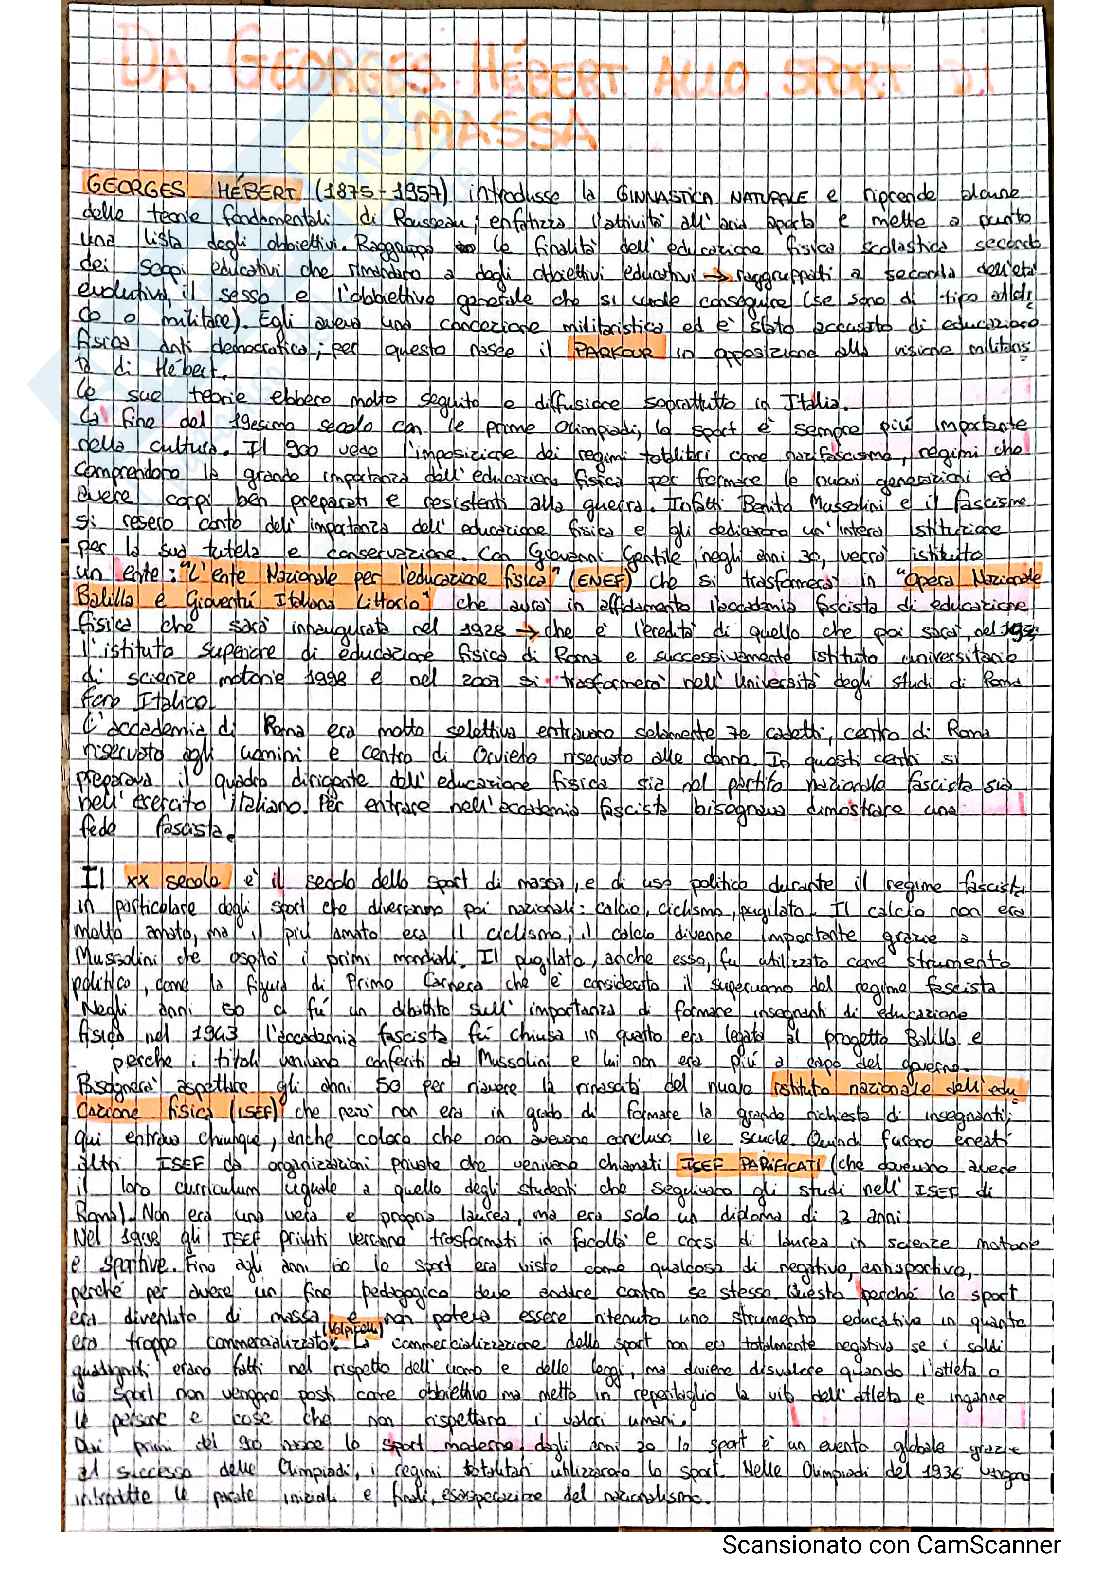 DA GEORGES HÉBERT ALLO SPORT DI
MASSA
GEORGES HÉBERT (1875-1957) introdusse la GINNASTICA NATURALE e riprende alcune
delle teorie fondamentali di Rousseau; enfatizza l'attività all'aria aperta e mette a punto
una lista degli obbiettivi. Raggruppa le finalità dell'educazione fisica scolastica secondo
dei scopi educativi che rimandano a degli obiettivi educativi → raggruppati a seconda dell'età
evolutiva, il sesso e l'obbiettivo generale che si vuole conseguire (se sono di tipo atleti
co o militare). Egli aveva una concezione militaristica ed è stato accusato di educazione
fisica anti democratica; per questo nasce il PARKOUR in opposizione alla visione militaris
ta di Hébert.
Le sue teorie ebbero molto seguito e diffusione soprattutto in Italia.
La fine del 19esimo secolo con le prime Olimpiadi, lo sport è sempre più importante
nella cultura. Il 900 vede l'imposizione dei regimi totalitari come nazifascismo, regimi che
comprendono la grande importanza dell'educazione fisica per formare le nuovi generazioni ed
avere corpi ben preparati e resistenti alla guerra. Infatti Benito Mussolini e il fascismo
si resero conto dell'importanza dell'educazione fisica e gli dedicarono un'intera istituzione
per la sua tutela e conservazione. Con Giovanni Gentile, negli anni 30, verrà istituito
un ente: "L'ente Nazionale per l'educazione fisica" (ENEF) che si trasformerà in "Opera Nazionale
Balilla e Gioventù Italiana Littorio" che avrà in affidamento l'accademia fascista di educazione
fisica che sarà inaugurata nel 1928 → che è l'eredità di quello che poi sarà, nel
l'istituto superiore di educazione fisica di Roma e successivamente istituto universitario
di scienze motorie 1998 e nel 2007 si trasformerà nell'Università degli studi di Roma
Foro Italico.
L'accademia di Roma era molto selettiva entravano solamente 70 cadetti, centro di Roma
riservato agli uomini e centro di Orvieto riservato alle donne. In questi centri si
preparava il quadro dirigente dell'educazione fisica sia nel partito nazionale fascista sia
nell'esercito italiano. Per entrare nell'accademia fascista bisognava dimostrare una
fede fascista.
Il xx secolo è il secolo dello sport di massa, e di uso politico durante il regime fascista
in particolare degli sport che diverranno poi nazionali: calcio, ciclismo, pugilato. Il calcio non era
molto amato, ma il più amato era il ciclismo; il calcio divenne importante grazie a
Mussolini che ospitò i primi mondiali. Il pugilato, anche esso, fu utilizzato come strumento
politico, come la figura di Primo Carnera che è considerato il superuomo del regime fascista
Negli anni 60 c'fù un dibattito sull'importanza di formare insegnanti di educazione
fisica nel 1943 l'accademia fascista fù chiusa in quanto era legata al progetto Balilla e
perché i titoli venivano conferiti da Mussolini e lui non era più a capo del governo.
Bisognerà aspettare gli anni 50 per riavere la rinascita del nuovo istituto nazionale dell'edu
cazione fisica (ISEF) che però non era in grado di formare la grande richiesta di insegnanti;
qui entrava chiunque, anche coloro che non avevano concluso le scuole. Quindi furono creati
altri ISEF da organizzazioni private che venivano chiamati ISEF PARIFICATI (che dovevano avere
il loro curriculum uguale a quello degli studenti che seguivano gli studi nell'ISEF di
Roma). Non era una vera e propria laurea, ma era solo un diploma di 3 anni.
Nel 1998 gli ISEF privati verranno trasformati in facoltà e corsi di laurea in scienze motorie
e sportive. Fino agli anni 60 lo sport era visto come qualcosa di negativo, antisportivo,
perché per avere un fine pedagogico deve andare contro se stesso. Questo perché lo sport
era diventato di massa e non poteva essere ritenuto uno strumento educativo in quanto
era troppo commercializzato. (Volpicelli) La commercializzazione dello sport non era totalmente negativa se i soldi
guadagnati erano fatti nel rispetto dell'uomo e delle leggi, ma diviene disvalore quando l'atleta o
lo sport non vengono posti come obbiettivo ma mette in repentaglio la vita dell'atleta e inganna
le persone e cose che non rispettano i valori umani.
Dai primi del 900 nasce lo sport moderno. dagli anni 20 lo sport è un evento globale grazie
al successo delle Olimpiadi, i regimi totalitari utilizzarono lo sport. Nelle Olimpiadi del 1936 vengono
introdotte le parate iniziali e finali, esasperazione del nazionalismo.
Scansionato con CamScanner